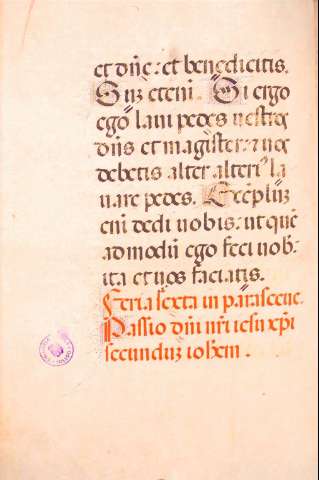 et dn̄e: et benedicitis.
Suꝫ eteni. Si ergo
ego laui pedes uestros
dn̄s et magister: ⁊ uos
debetis alter alteri⁹ la
uare pedes. Exēpluꝫ
eni dedi uobis: ut quē
admodū ego feci uob̄
ita et uos faciatis.
Feria sexta in parasceue.
Passio dn̄i nr̄i iesu xp̄i
secunduꝫ ioh̄em.